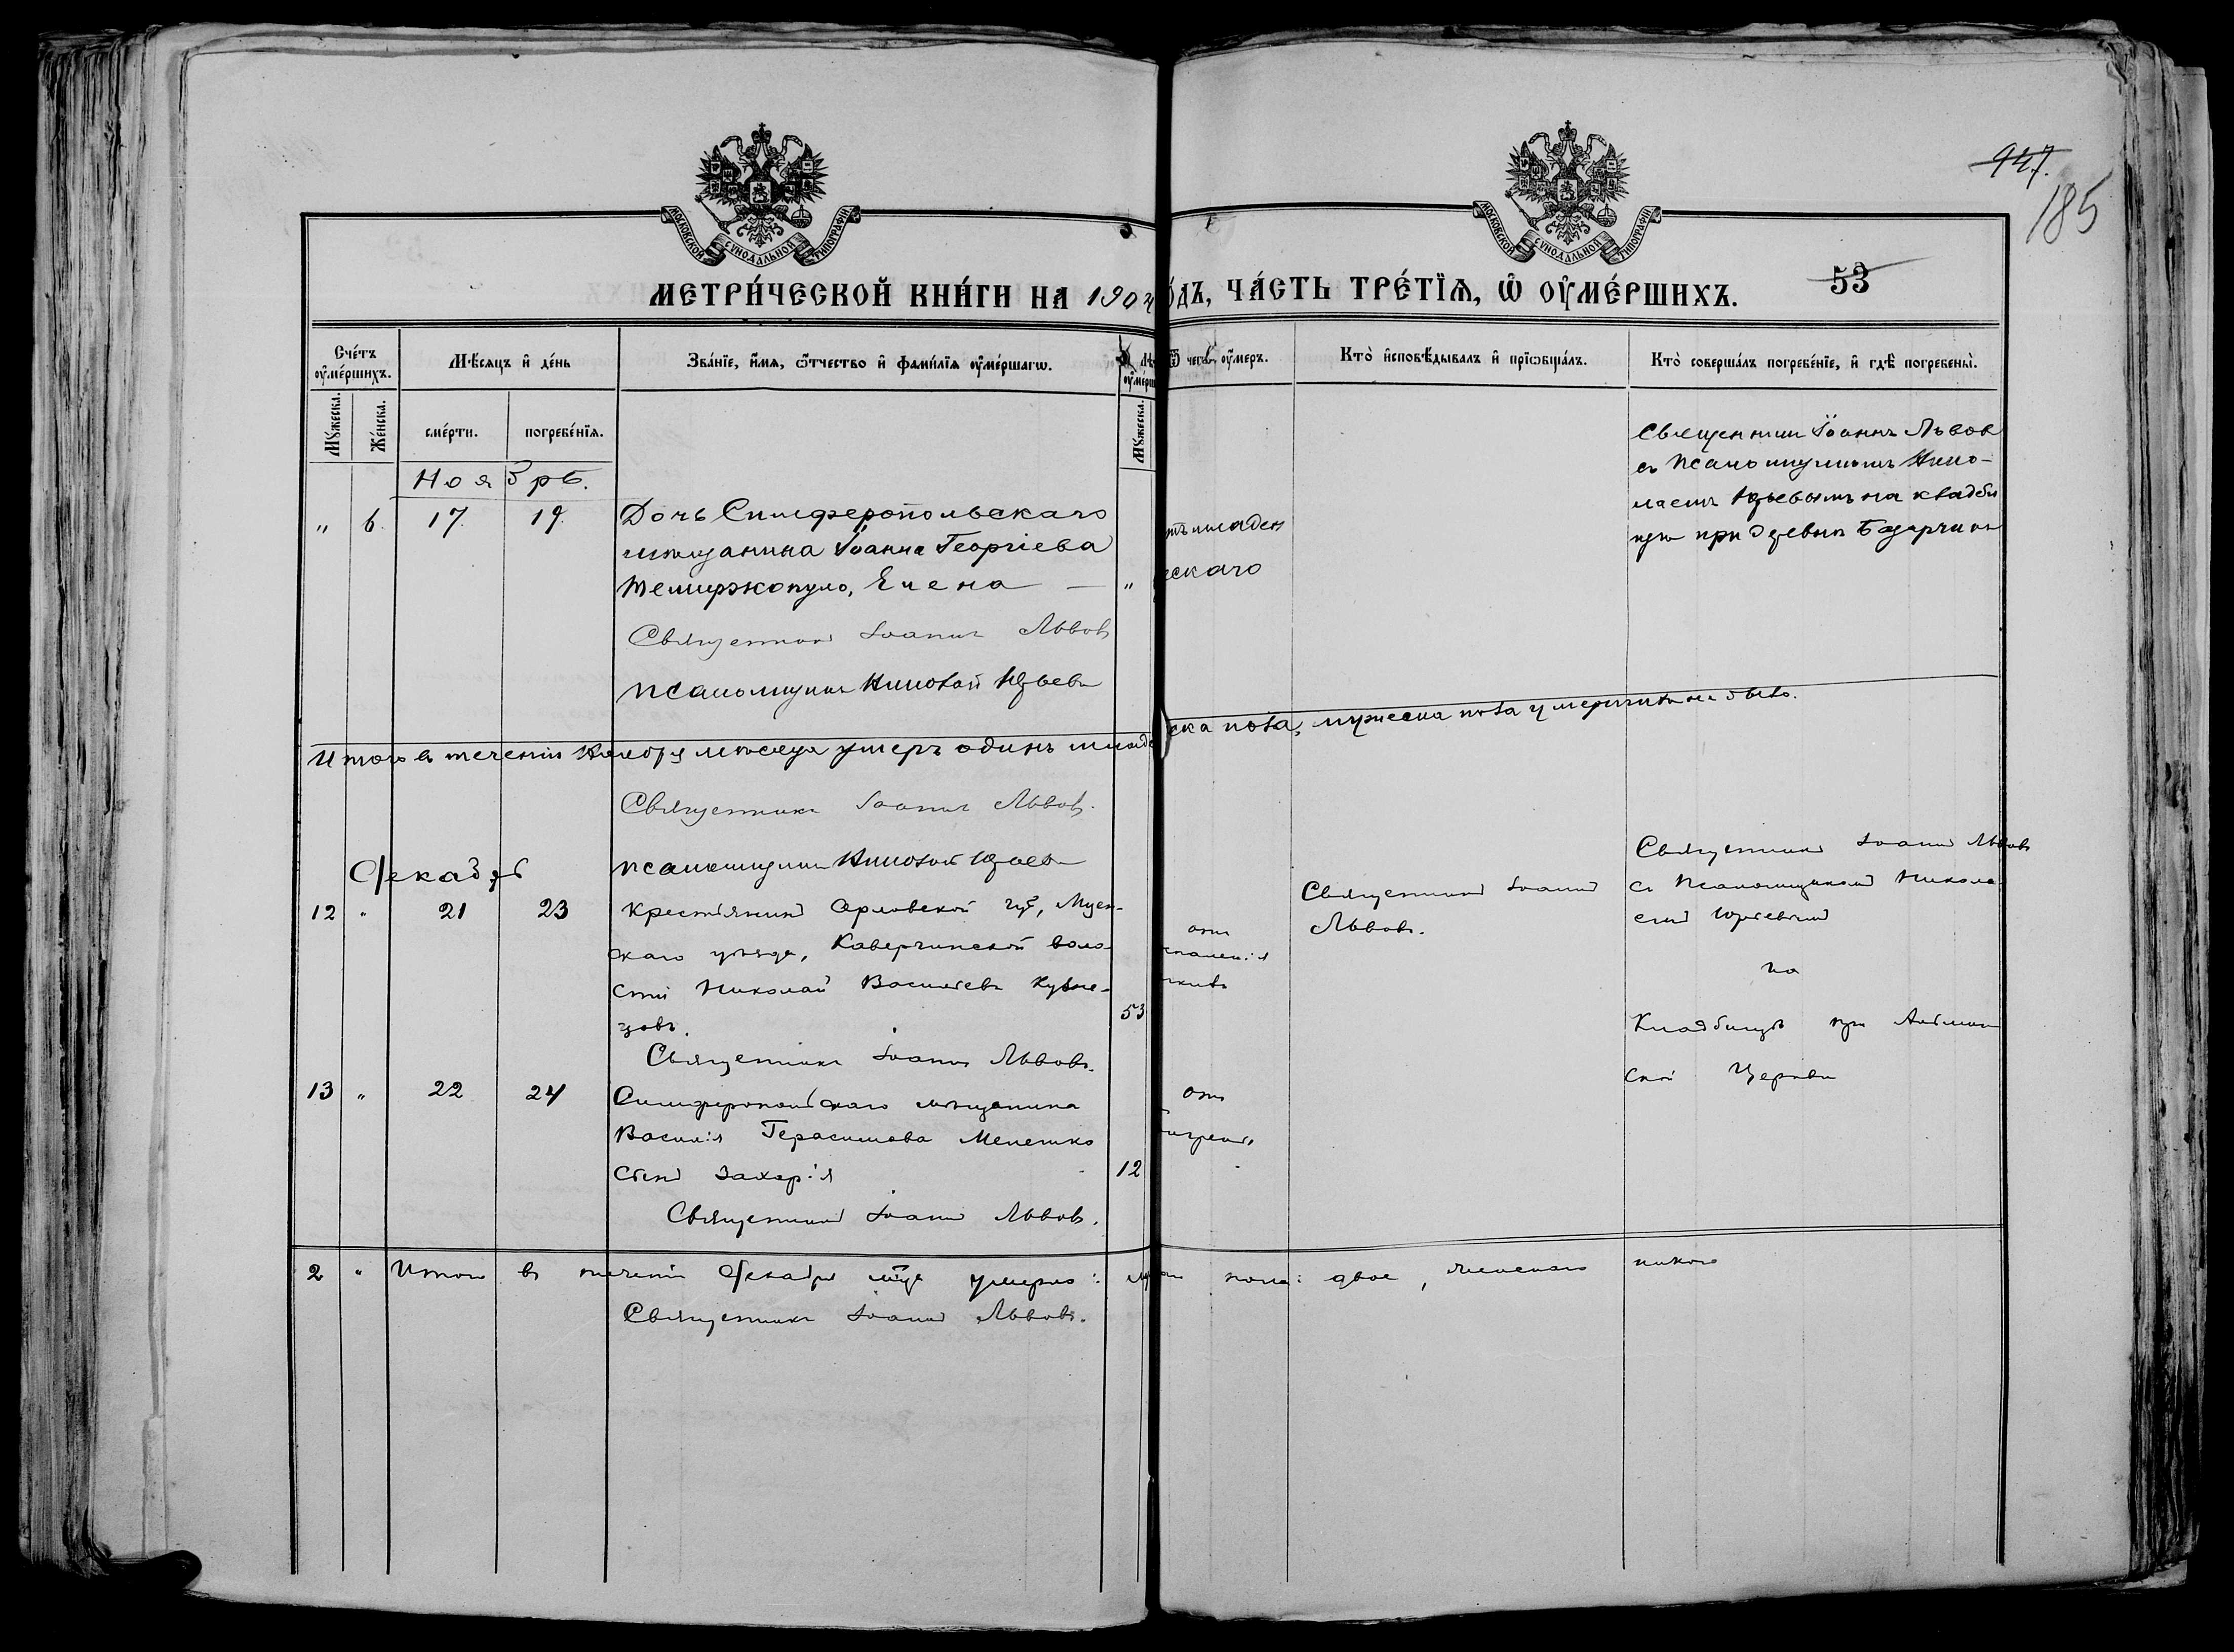 947.
185
МОСКОВСКОЙ СѴНОДАЛЬНОЙ ТИПОГРАФІИ
МОСКОВСКОЙ СѴНОДАЛЬНОЙ ТИПОГРАФІИ
МЕТРИ́ЧЕСКОЙ КНИ́ГИ НА 1904
О́ДЪ, ЧА́СТЬ ТРЕ́ТЇѦ, Ѡ҆ ОУ҆МЕ́РШИХЪ.
53
Сче́тъ оу҆ме́ршихъ.
Мѣ́сяцъ и҆ де́нь
Зва́нїе, и҆́мѧ, ѻ҆́тчество и҆ фами́лїѧ оу҆ме́ршагѡ.
Ѿ чегѡ̀ оу҆́меръ.
Кто̀ и҆сповѣ́дывалъ и҆ прїѡбща́лъ.
Кто̀ соверша́лъ погребе́нїе, и҆ гдѣ̀ погребены̀.
Мꙋ́жеска.
Же́нска.
сме́рти.
погребе́нїѧ.
Мꙋ́жеска.
Ноябрь.
" 6. 17. 19.
Дочь Симферопольскаго
мѣщанина Іоанна Георгіева
Темиржопуло, Елена — "
Священникъ Іоаннъ Львовъ
Псаломщикъ Николай Юрьевъ
младен
ескаго
Священник Іоаннъ Львов
съ Псаломщикомъ Нико-
лаемъ Юрьевымъ на кладби
при деревни
Итого въ теченіи Ноября мѣсяца умеръ одинъ младе
ска пола, мужеска пола умершихъ не было.
Священникъ Іоаннъ Львовъ.
Псаломщикъ Николай Юрьевъ
Декабрь
12 " 21 23
Крестьянинъ Орловской губ, Мцен-
скаго уѣзда, воло
сти Николай Васильевъ Кузне-
цовъ.
53
Священникъ Іоаннъ Львовъ.
отъ
спаленія
Священникъ Іоаннъ
Львовъ.
Священникъ Іоаннъ Львовъ
съ Псаломщикомъ Никола
емъ Юрьевымъ
на
Кладбищѣ при
ской Церкви
13 " 22 24
Симферопольскаго мѣщанина
Василія Герасимова Мелешко
сынъ Захарія
12
Священникъ Іоаннъ Львовъ.
отъ
2 " Итого въ теченіи Декабря м-ца умерло: муж
пола: двое, женскаго никого
Священникъ Іоаннъ Львовъ.